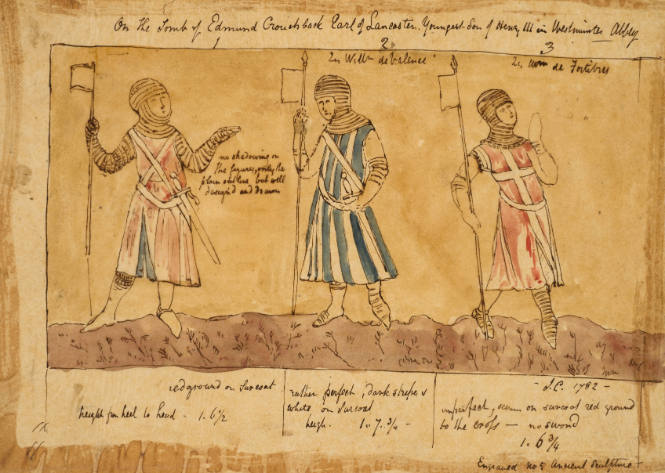 On the Tomb of Edmund Crouchback Earl of Lancaster. Youngest Son of Henry III in Westminster Abbey
1 2 3
Wm de Valence
de Fortibus
no shadowing on
the figures, only the
plain outline but well
and drawn
red ground on Surcoat
height from heel to head - 1. 6 1/2
rather perfect, dark stripes &
white on Surcoat
heigh. 1. 7. 3/4 -
J.C. 1782 -
imperfect, on surcoat red ground
to the cross - no sword
1. 6 3/4
Engraved in Ancient Sculpture -